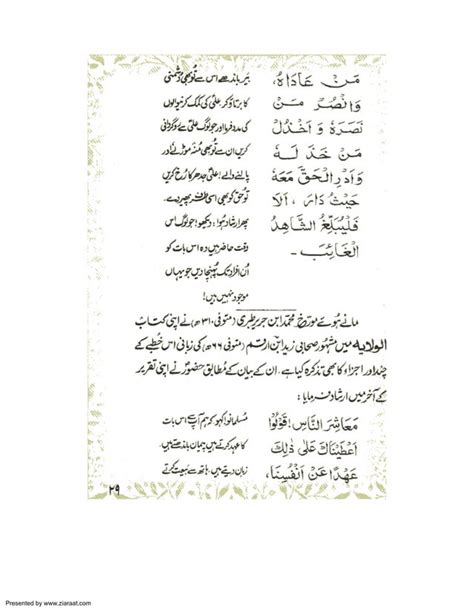 مَنْ عَادَاهُ،
وَانْصُرْ مَنْ
نَصَرَهُ وَاخْذُلْ
مَنْ خَذَلَهُ
وَأَدِرِ الْحَقَّ مَعَهُ
حَيْثُ دَارَ، اَلَا
فَلْيُبَلِّغِ الشَّاهِدُ
الْغَائِبَ -
بیر باندھے اس سے تُو بھی دشمنی
کا برتاؤ کر علیؑ کی کمک کرنیوالوں
کی مدد فرما اور جو لوگ علیؑ سے روگردانی
کریں ان سے تُو بھی مُنہ موڑ لے اور
پالنے والے! علیؑ جدھر کا رُخ کریں
تُو حق کو بھی اسی طرف پھیر دے۔
پھر ارشاد ہُوا: دیکھو! جو لوگ اس
وقت حاضر ہیں وہ اس بات کو
اُن افراد تک پہنچا دیں جو یہاں
موجود نہیں ہیں!
مانے ہُوئے مورّخ محمد ابن جریر طبری (متوفی ۳۱۰ھ) نے اپنی کتاب
الولایہ میں مشہور صحابی زید ابن ارقم (متوفی ۶۶ھ) کی زبانی اس خطبے کے
چند اور اجزاء کا بھی تذکرہ کیا ہے۔ ان کے بیان کے مُطابق حضورؐ نے اپنی تقریر
کے آخر میں ارشاد فرمایا:
مَعَاشِرَ النَّاسِ! قُوْلُوْا
اَعْطَيْنَاكَ عَلٰى ذٰلِكَ
عَهْدًا عَنْ اَنْفُسِنَا،
مسلمانو! کہو کہ ہم آپ سے اس بات
کا عہد کرتے ہیں، پیمان باندھتے ہیں
زبان دیتے ہیں، ہاتھ سے بیعت کرتے
۲۹
Presented by www.ziaraat.com